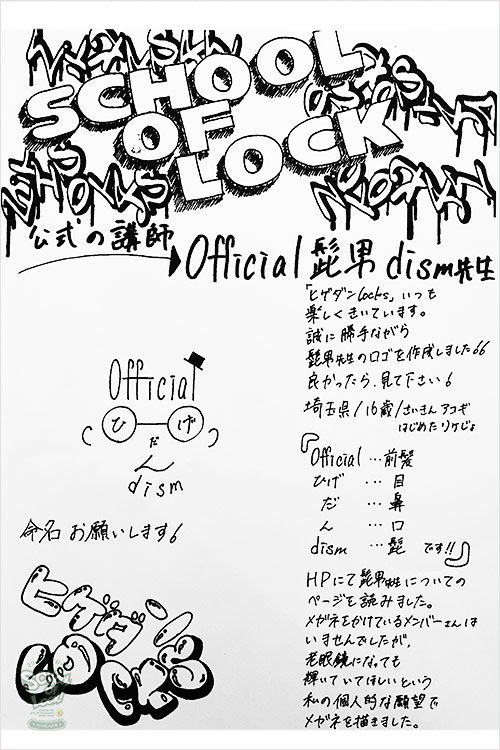 SCHOOL
OF
LOCK
公式の講師
Official 髭男 dism先生
「ヒゲダンLocks」いつも
楽しくきいています。
誠に勝手ながら
髭男先生のロゴを作成しました
良かったら、見て下さい
埼玉県/16歳/さいきんアコギ
はじめたリケじょ
Official
ひ げ
だ
ん
dism
命名 お願いします
『
Official …前髪
ひげ …目
だ …鼻
ん …口
dism …髭 です!!
』
HPにて髭男先生についての
ページを読みました。
メガネをかけているメンバーさんは
いませんでしたが、
老眼鏡になっても
輝いていてほしいという
私の個人的な願望で
メガネを描きました。
ヒゲダン
LOCKS